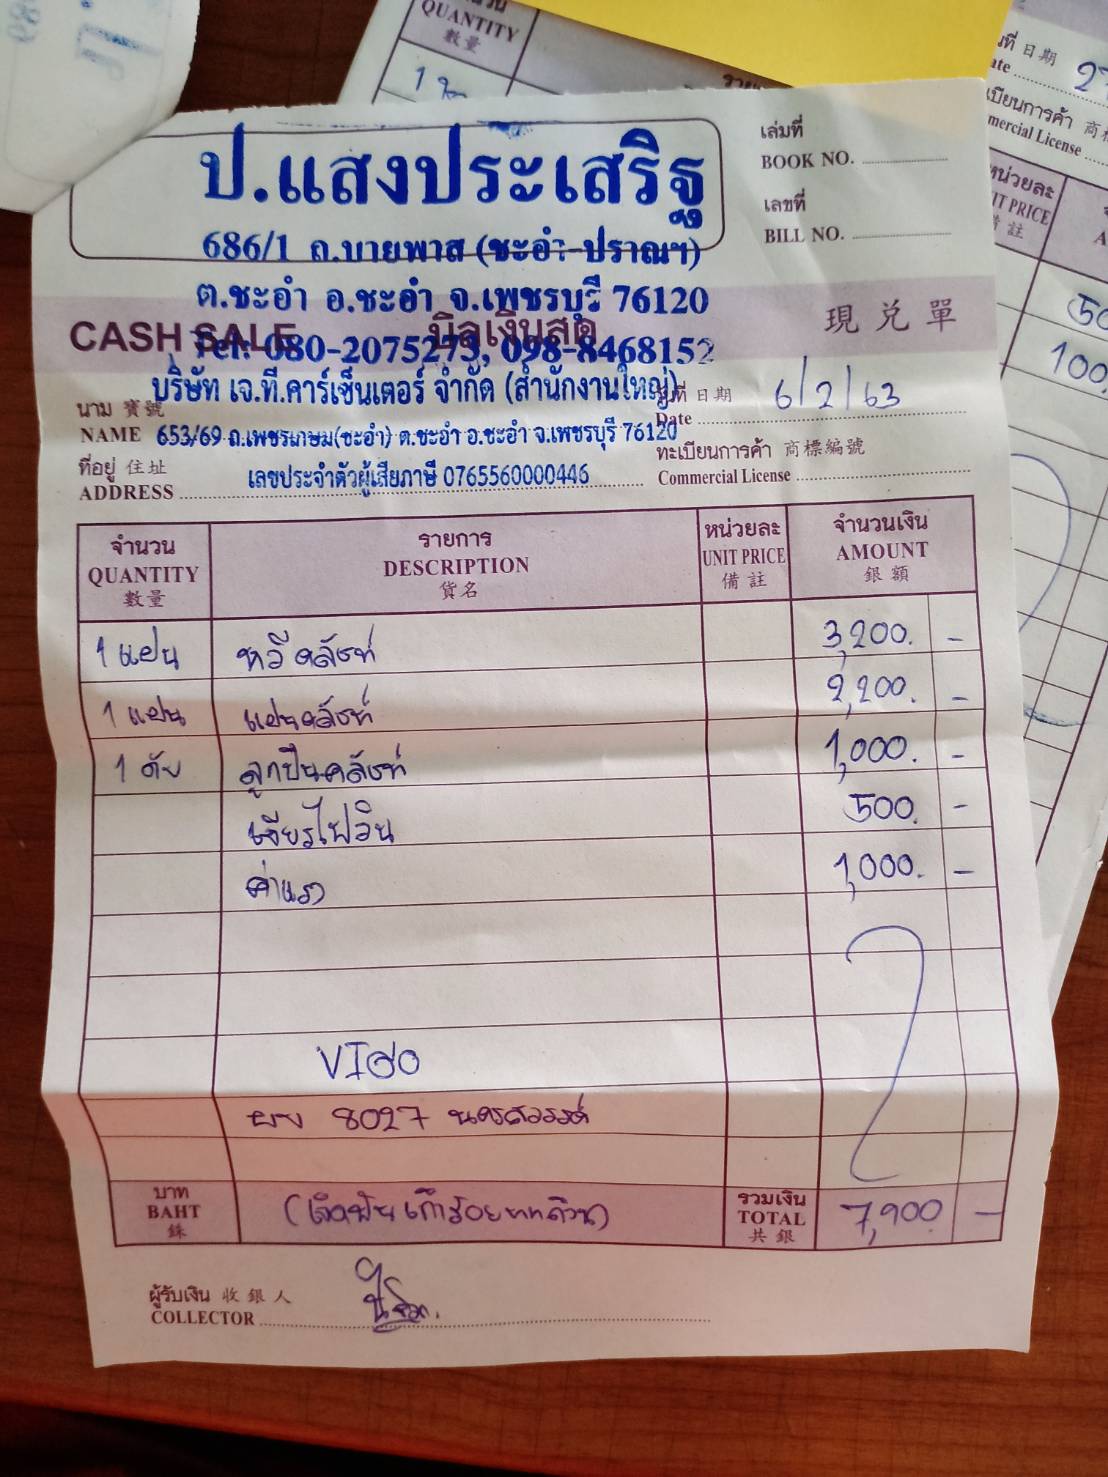 QUANTITY
數量
ป.แสงประเสริฐ
686/1 ถ.บายพาส (ชะอำ-ปราณฯ)
ต.ชะอำ อ.ชะอำ จ.เพชรบุรี 76120
Tel: 080-2075273, 098-8468152
เล่มที่
BOOK NO.
เลขที่
BILL NO.
CASH SALE บิลเงินสด 現兑單
บริษัท เจ.ที.คาร์เซ็นเตอร์ จำกัด (สำนักงานใหญ่)
นาม 寶號
NAME 653/69 ถ.เพชรเกษม(ชะอำ) ต.ชะอำ อ.ชะอำ จ.เพชรบุรี 76120
วันที่ 日期 6/2/63
Date
ที่อยู่ 住址
ADDRESS เลขประจำตัวผู้เสียภาษี 0765560000446
ทะเบียนการค้า 商標編號
Commercial License
จำนวน รายการ หน่วยละ จำนวนเงิน
QUANTITY DESCRIPTION UNIT PRICE AMOUNT
數量 貨名 備註 銀額
1 แผ่น หวีคลัชท์ 3,200. -
1 แผ่น แผ่นคลัชท์ 2,200. -
1 ตับ ลูกปืนคลัชท์ 1,000. -
เจียรไฟวิน 500. -
ค่าแรง 1,000. -
VIGO
ผบ 8027 นครสวรรค์
บาท
BAHT
銖
(เจ็ดพันเก้าร้อยบาทถ้วน)
รวมเงิน
TOTAL
共銀
7,900 -
ผู้รับเงิน 收銀人
COLLECTOR